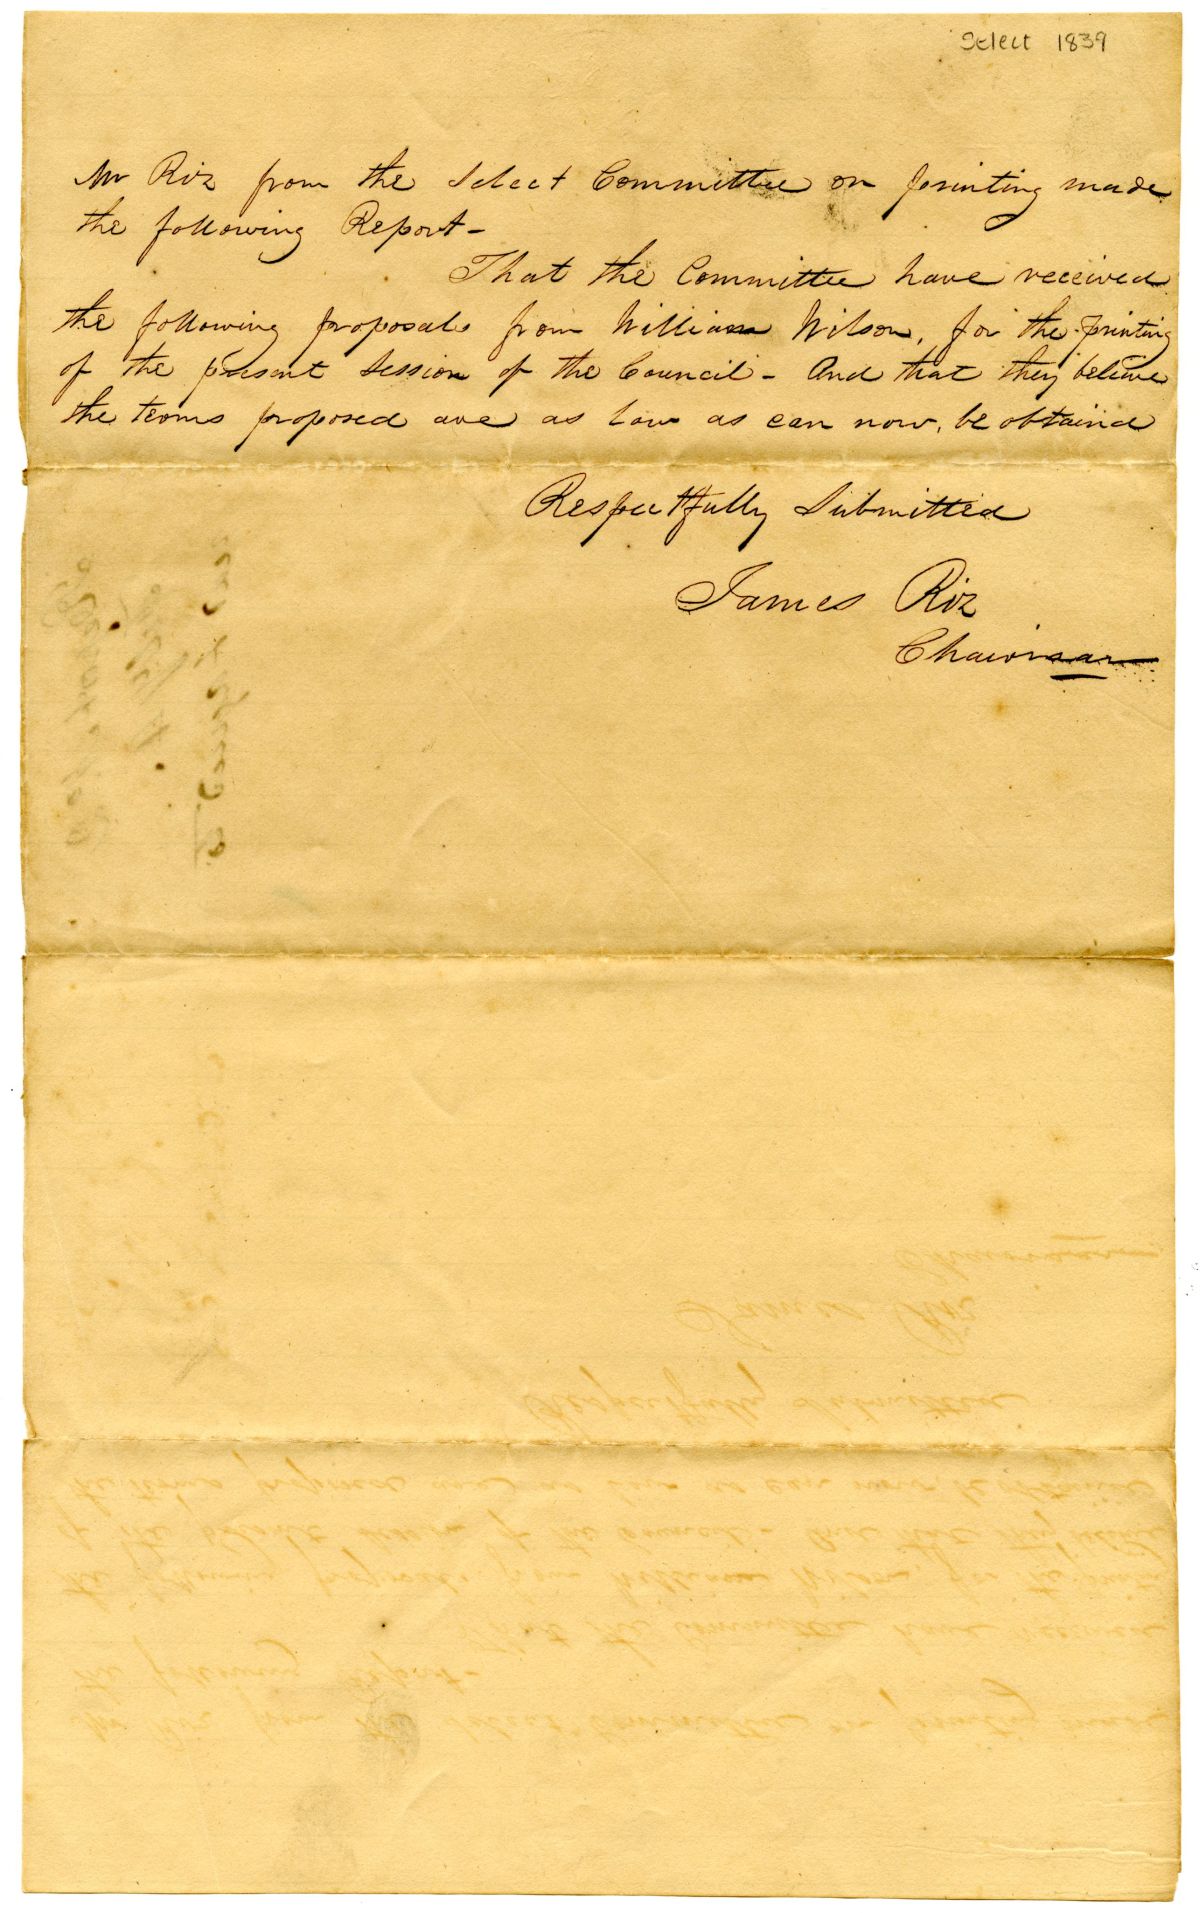 Select 1839
Mr Riz from the Select Committee on printing made
the following Report-
That the Committee have received
the following proposals from William Wilson, for the printing
of the present Session of the Council - And that they believe
the terms proposed are as low as can now, be obtaind
Respectfully Submitted
James Riz
Chairman